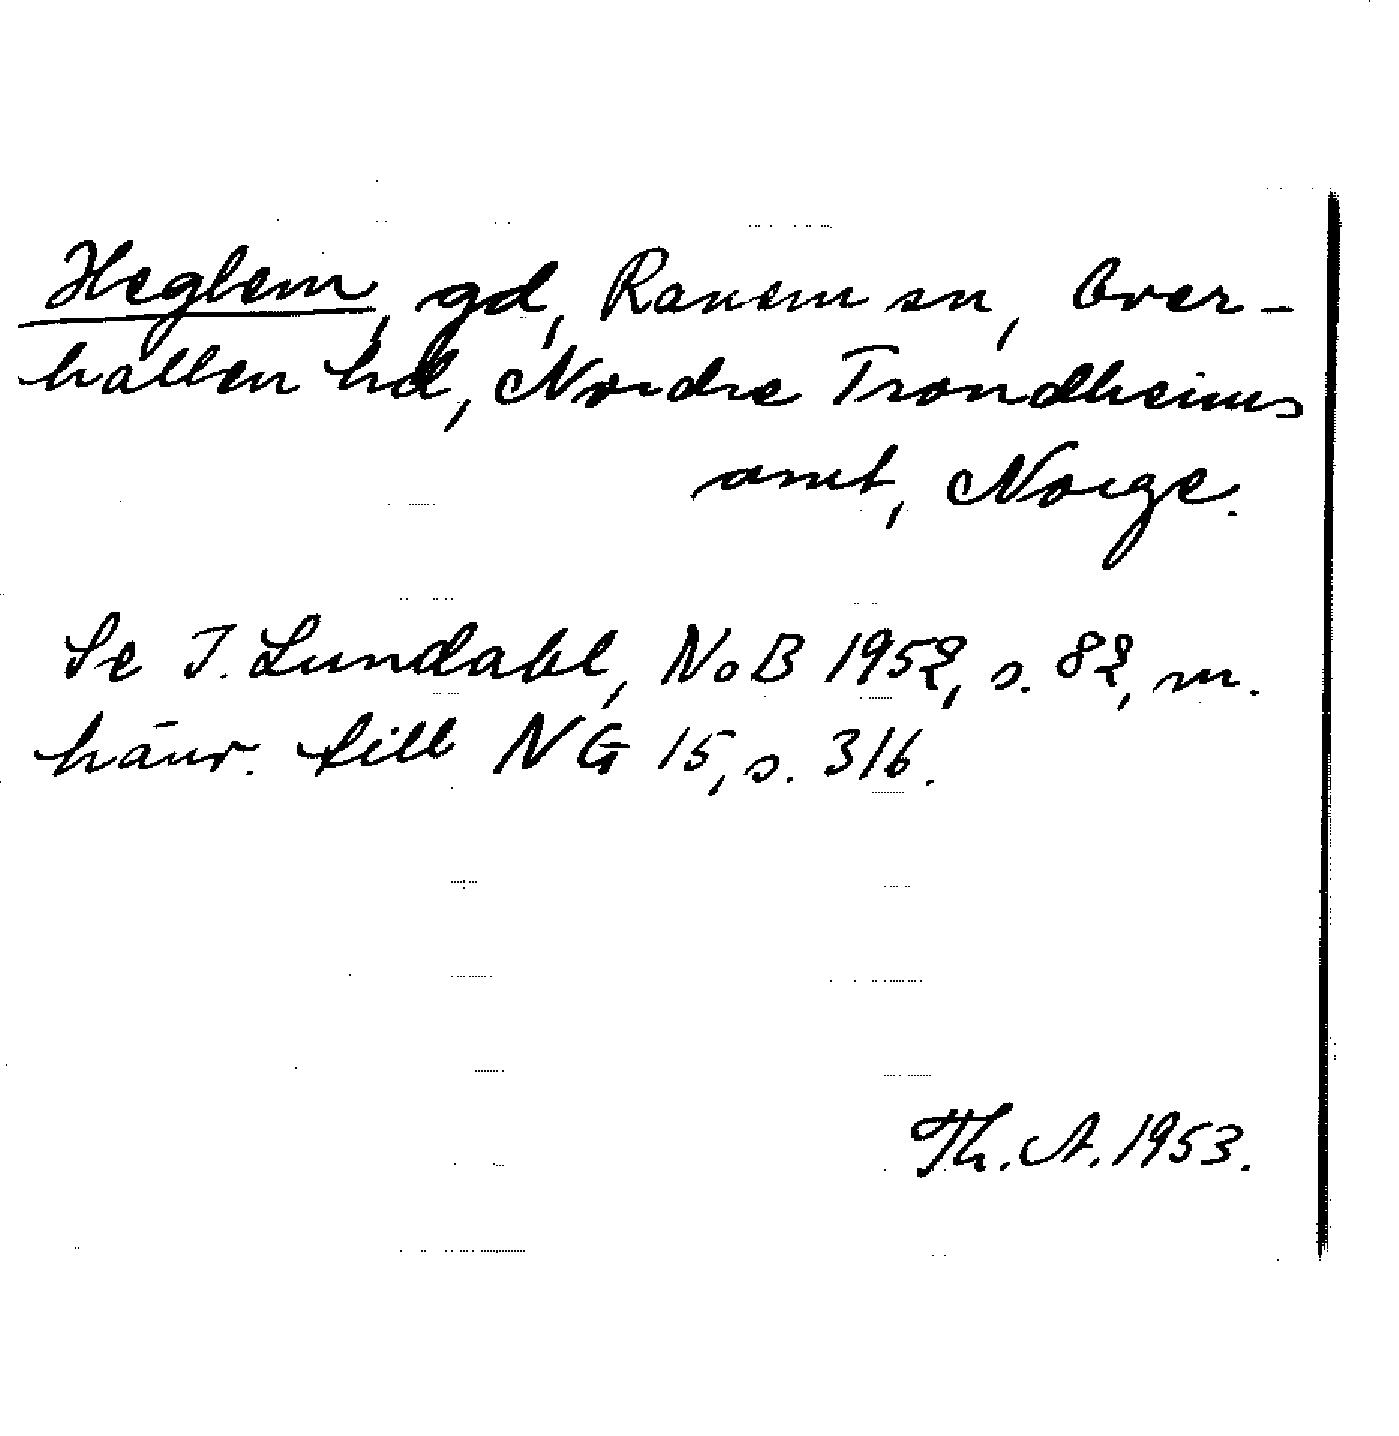 Heglem, gd, Ranem sn, Over-
hallen hd, Nordre Trondheims
amt, Norge.
Se I. Lundahl, NoB 1952, s. 82, m.
hänv. till NG 15, s. 316.
Th. A. 1953.